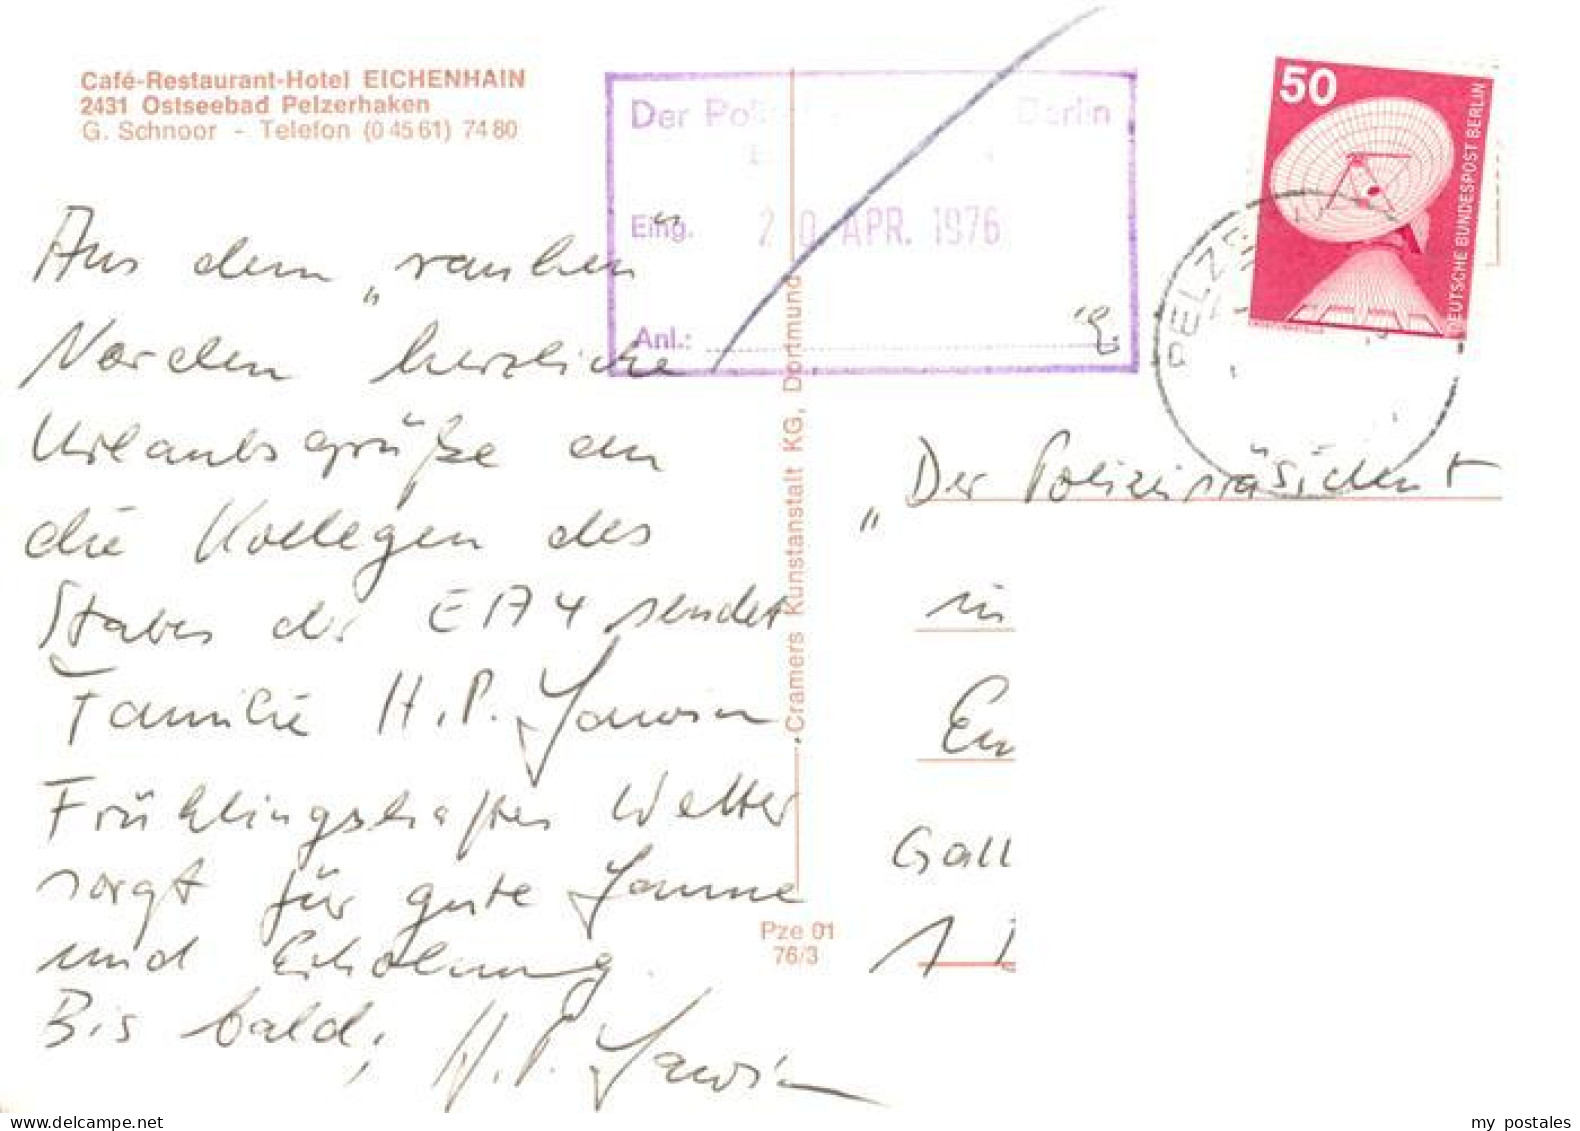 Café-Restaurant-Hotel EICHENHAIN
2431 Ostseebad Pelzerhaken
G. Schnoor - Telefon (0 45 61) 74 80
Der Berlin
Eing. 20 APR. 1976
Anl.:
50
DEUTSCHE BUNDESPOST BERLIN
PELZE
Aus dem „rauhen"
Norden herzliche
Urlaubsgrüße an
die Kollegen des
Stabes der EA 4 sendet
Familie H. P.
Frühlingshaftes Wetter
sorgt für gute Laune
und Erholung.
Bis bald,
H. P.
Cramers Kunstanstalt KG, Dortmund
Pze 01
76/3
„Der Polizeipräsident
in
Gall
1
my postales